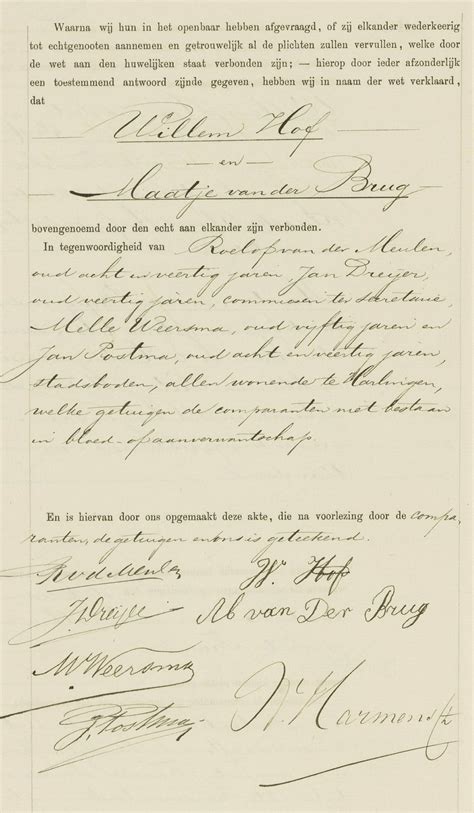 Waarna wij hun in het openbaar hebben afgevraagd, of zij elkander wederkeerig
tot echtgenooten aannemen en getrouwelijk al de plichten zullen vervullen, welke door
de wet aan den huwelijken staat verbonden zijn; — hierop door ieder afzonderlijk
een toestemmend antwoord zijnde gegeven, hebben wij in naam der wet verklaard,
dat
Willem Hof
— en —
Maatje van der Brug
bovengenoemd door den echt aan elkander zijn verbonden.
In tegenwoordigheid van Roelof van der Meulen,
oud acht en veertig jaren, Jan Dreijer,
oud veertig jaren, commiesen ter secretarie,
Melle Weersma, oud vijftig jaren en
Jan Postma, oud acht en veertig jaren,
stadsboden, allen wonende te Harlingen,
welke getuigen de comparanten niet bestaan
in bloed- of aanverwantschap.
En is hiervan door ons opgemaakt deze akte, die na voorlezing door de compa-
ranten, de getuigen en ons is geteekend.
R v d Meulen W. Hof
J. Dreijer M van Der Brug
M Weersma
J. Postma Harmens